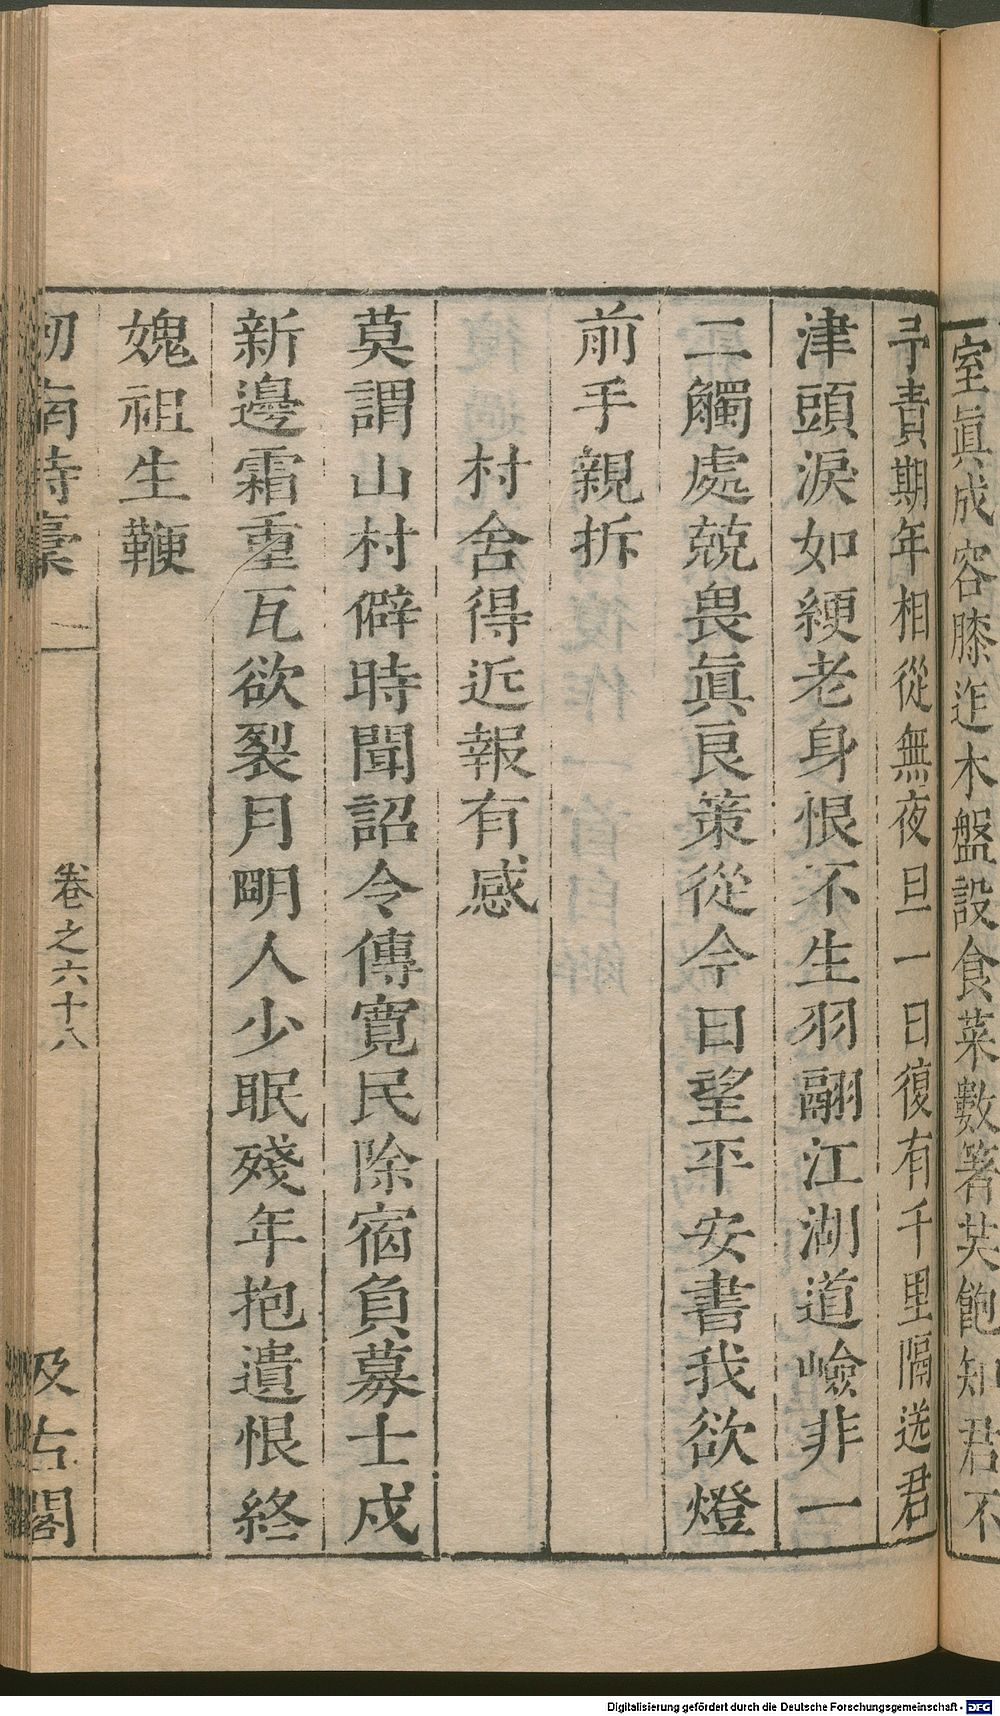 室眞成容膝迮木盤設食菜數箸共飽知君不
予責期年相從無夜旦一日復有千里隔送君
津頭淚如綆老身恨不生羽翮江湖道嶮非一
二觸處兢畏眞良策從今日望平安書我欲燈
前手親拆
村舍得近報有感
莫謂山村僻時聞詔令傳寛民除宿負募士戍
新邊霜重瓦欲裂月明人少眠殘年抱遺恨終
媿祖生鞭
劒南詩稾 卷之六十八 汲古閣
Digitalisierung gefördert durch die Deutsche Forschungsgemeinschaft - DFG